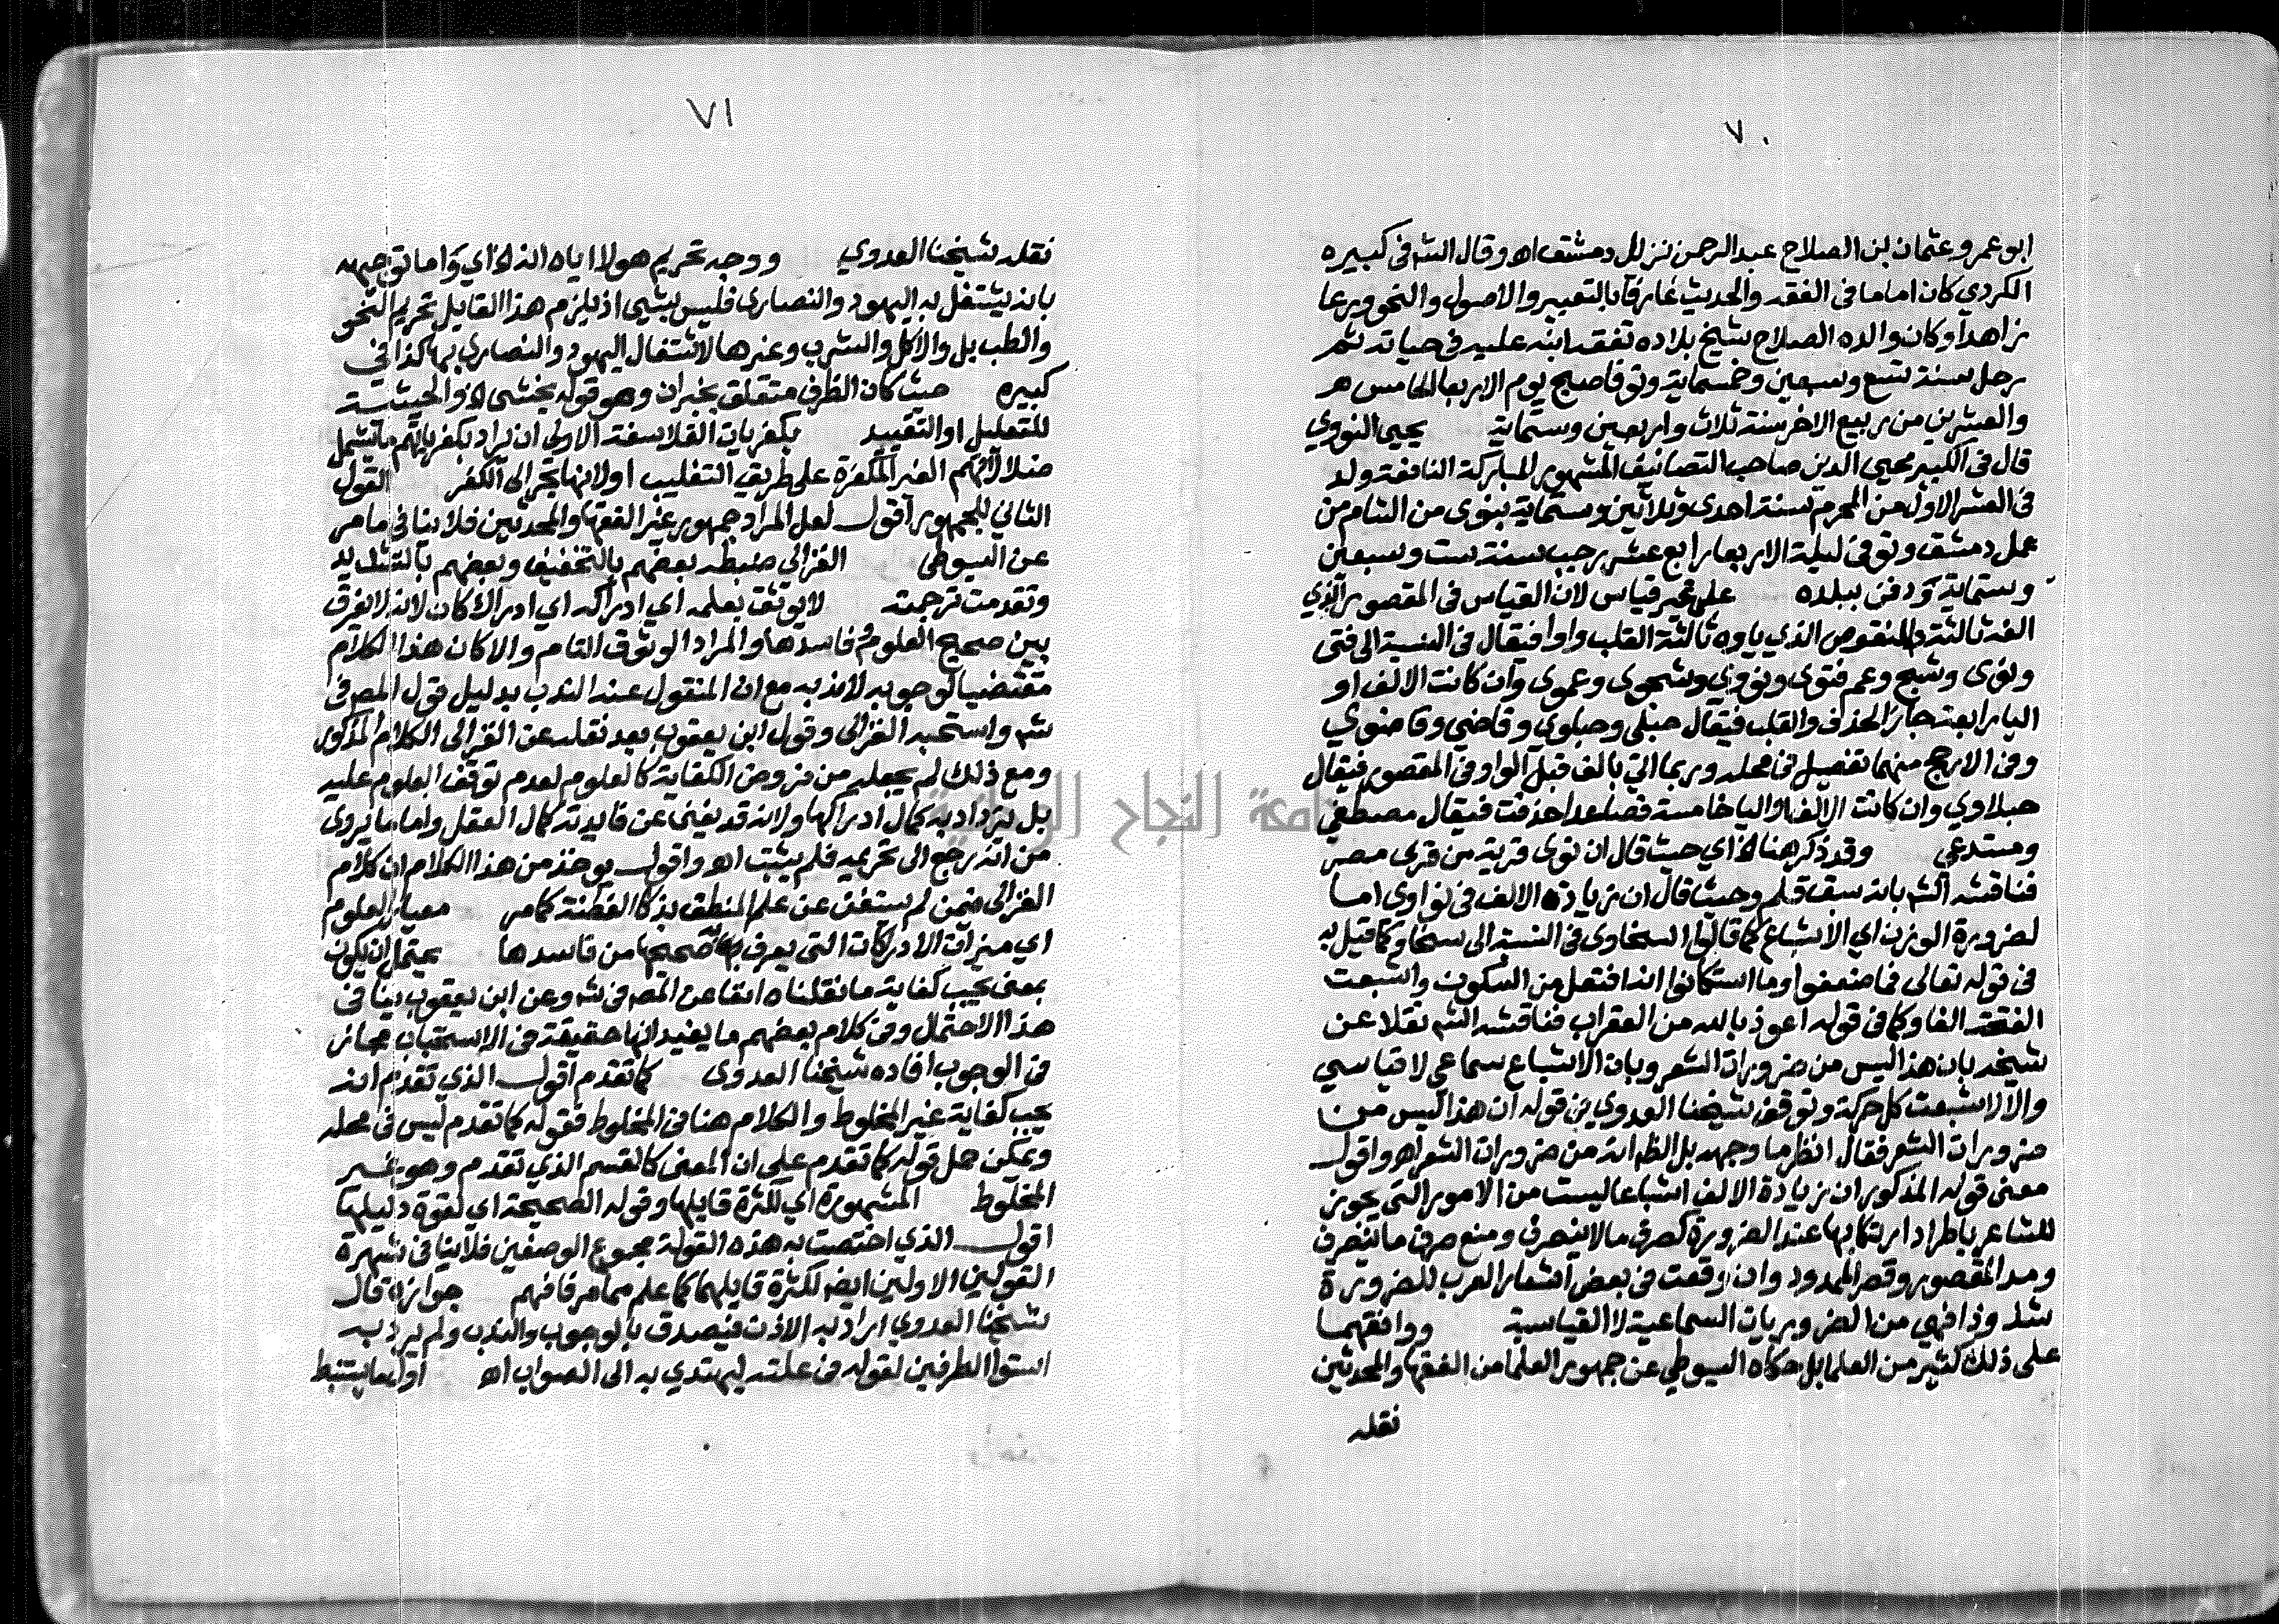 ٧٠
ابو عمرو عثمان بن الصلاح عبد الرحمن نزيل دمشق اه وقال الشه فى كبيره
الكردى كان اماما فى الفقه والحديث عارفا بالتفسير والاصول والنحو ورعا
زاهدا وكان والده الصلاح شيخ بلاده تفقه ابنه عليه فى حياته ثم
رحل سنة تسع وسبعين وخمسماية وتوفا صبح يوم الاربعا الخامس
والعشرين من ربيع الاخر سنة ثلاث واربعين وستماية يحيى النووي
قال فى الكبير محيى الدين صاحب التصانيف المشهورر المباركة النافعة ولد
فى العشر الاول من المحرم سنة احدى وثلاثين وستماية بنوى من الشام من
عمل دمشق وتوفى ليلة الاربعا رابع عشر رجب سنة ست وسبعين
وستماية ودفن ببلده على غير قياس لان القياس فى المقصور الذي
الفه ثالثة والمنقوص الذي ياوه ثالثة القلب واوا فيقال فى النسبة الى فتى
ونوى وشج وعم فتوى ونووي وشجوى وعموى وان كانت الالف او
اليا رابعة جاز الحذف والقلب فيقال حبلى وحبلوي وقاضي وقاضوي
وفى الارجح منهما تفصيل فى محله وربما اتي بالف قبل الواو فى المقصور فيقال
حبلاوي وان كانت الالف او اليا خامسة فصاعدا حذفت فيقال مصطفي
ومستدعي وقد ذكر هنا اي حيث قال ان نوى قرية من قرى مصر
فناقشه الشه بانه سبق قلم وحيث قال ان زيادة الالف فى نواوى اما
لضرورة الوزن اي الاشباع كما قالوا السخاوى فى النسبة الى سخا وكما قيل به
فى قوله تعالى فما ضعفوا وما استكانوا انه افتعل من السكون واشبعت
الفتحة الفا وكما فى قوله اعوذ بالله من العقراب فناقشه الشه نقلا عن
شيخه بان هذا ليس من ضرورات الشعر وبان الاشباع سماعي لا قياسي
والا لاشبعت كل حركة وتوقف شيخنا العدوي فى قوله ان هذا ليس من
ضرورات الشعر فقال انظر ما وجهه بل الظ انه من ضرورات الشعر اه واقول
معنى قوله المذكور ان زيادة الالف اشباعا ليست من الامور التى يجوز
للشاعر باطراد ارتكابها عند الضرورة كصرف ما لا ينصرف ومنع صرف ما ينصرف
ومد المقصور وقصر الممدود وان وقعت فى بعض اشعار العرب للضرورة
شذوذا فهي من الضروريات السماعية لا القياسية ووافقهما
على ذلك كثير من العلما بل حكاه السيوطي عن جمهور العلما من الفقها والمحدثين
نقله
٧١
نقله شيخنا العدوي ووجه تحريم هولا اياه انه اي واما توجيهه
بانه يشتغل به اليهود والنصارى فليس بشيى اذ يلزم هذا القايل تحريم النحو
والطب بل والاكل والشرب وغيرها لاشتغال اليهود والنصارى بها كذا فى
كبيره حيث كان الظرف متعلق بخبر ان وهو قوله يخشى والحيثية
للتعليل او التقييد بكفريات الفلاسفة الاولى ان يراد بكفرياتهم ما يشمل
ضلالاتهم الغير المكفرة على طريق التغليب او لانها تجر الى الكفر القول
الثاني للجمهور اقول لعل المراد جمهور غير الفقها والمحدثين فلا ينافى ما مر
عن السيوطى الغزالى ضبطه بعضهم بالتخفيف وبعضهم بالتشديد
وتقدمت ترجمته لا يوثق بعلمه اي ادراكه اي ادراك كان لانه لا يفرق
بين صحيح العلوم وفاسدها والمراد الوثوق التام والا كان هذا الكلام
مقتضيا لوجوبه لا ندبه مع ان المنقول عنه الندب بدليل قول المصه فى
شه واستحبه الغزالى وقول ابن يعقوب بعد نقله عن الغزالى الكلام المذكور
ومع ذلك لم يجعله من فروض الكفاية كالعلوم لعدم توقف العلوم عليه
بل يزداد به كمال ادراكها ولانه قد يغنى عن فايدته كمال العقل واما ما يروى
من انه رجع الى تحريمه فلم يثبت اه واقول يوخذ من هذا الكلام ان كلام
الغزالى فيمن لم يستغن عن علم المنطق بذكا الفطنة كما مر معيار العلوم
اي ميزان الادراكات التى يعرف به صحيحها من فاسدها يحتمل ان يكون
بمعنى يجب كفاية ما نقلناه انفا عن المصه فى شه وعن ابن يعقوب ينافى
هذا الاحتمال وفى كلام بعضهم ما يفيد انها حقيقة فى الاستحباب مجاز
فى الوجوب افاده شيخنا العدوى كما تقدم اقول الذي تقدم انه
يجب كفاية غير المخلوط والكلام هنا فى المخلوط فقوله كما تقدم ليس فى محله
ويمكن حمل قوله كما تقدم على ان المعنى كالقسم الذي تقدم وهو غير
المخلوط المشهورة اي لكثرة قايلها وقوله الصحيحة اي لقوة دليلها
اقول الذي اختصت به هذه القولة مجموع الوصفين فلا ينافى شهرة
القولين الاولين ايضا لكثرة قايلهما كما علم مما مر فافهم جوازه قال
شيخنا العدوي اراد به الاذن فيصدق بالوجوب والندب ولم يرد به
استوا الطرفين لقوله فى علته ليهتدي به الى الصواب اه